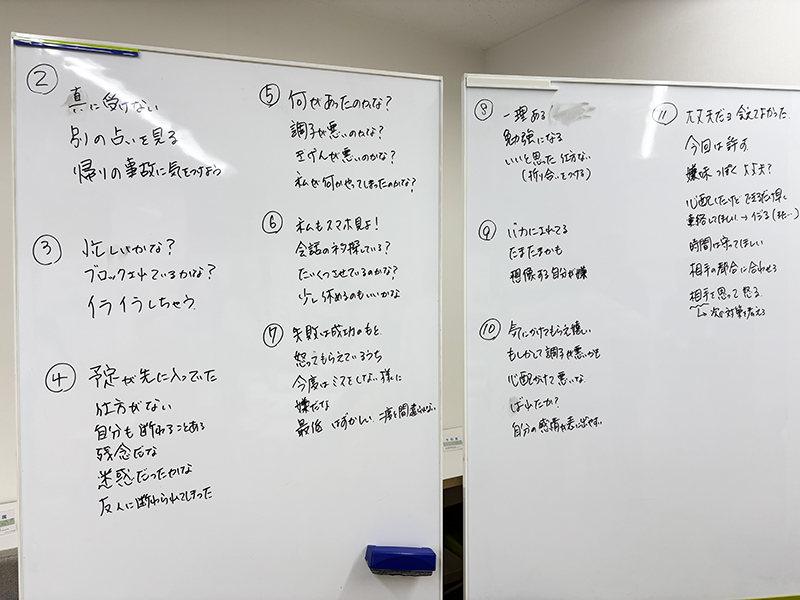 ②
真に受けない
別の占いを見る
帰りの事故に気をつけよう
③
忙しいかな?
ブロックされているかな?
イライラしちゃう
④
予定が先に入っていた
仕方がない
自分も断わることある
残念だな
迷惑だったかな
友人に断わられてしまった
⑤
何があったのかな?
調子が悪いのかな?
きげんが悪いのかな?
私が何かやってしまったのかな?
⑥
私もスマホ見よ!
会話のネタ探している?
たいくつさせているのかな?
少し休めるのもいいかな
⑦
失敗は成功のもと
怒ってもらえているうち
今度はミスをしない様に
嫌だな
最低 はずかしい 二度と間違えない
⑧
一理ある(
勉強になる
いいと思った 仕方ない
(折り合いをつける)
⑨
バカにされてる
たまたまかも
想像する自分が嫌
⑩
気にかけてもらえ嬉しい
もしかして調子が悪いかも
心配かけて悪いな
ばれたか?
自分の感情が表に出やすい
⑪
大丈夫だよ 会えてよかった
今回は許す
嫌味っぽく 大丈夫?
心配したけど できるだけ早く
連絡してほしい → イライラ(また…)
時間は守ってほしい
相手の都合に合わせる
相手を思って 怒る
↳ 次の対策を考える